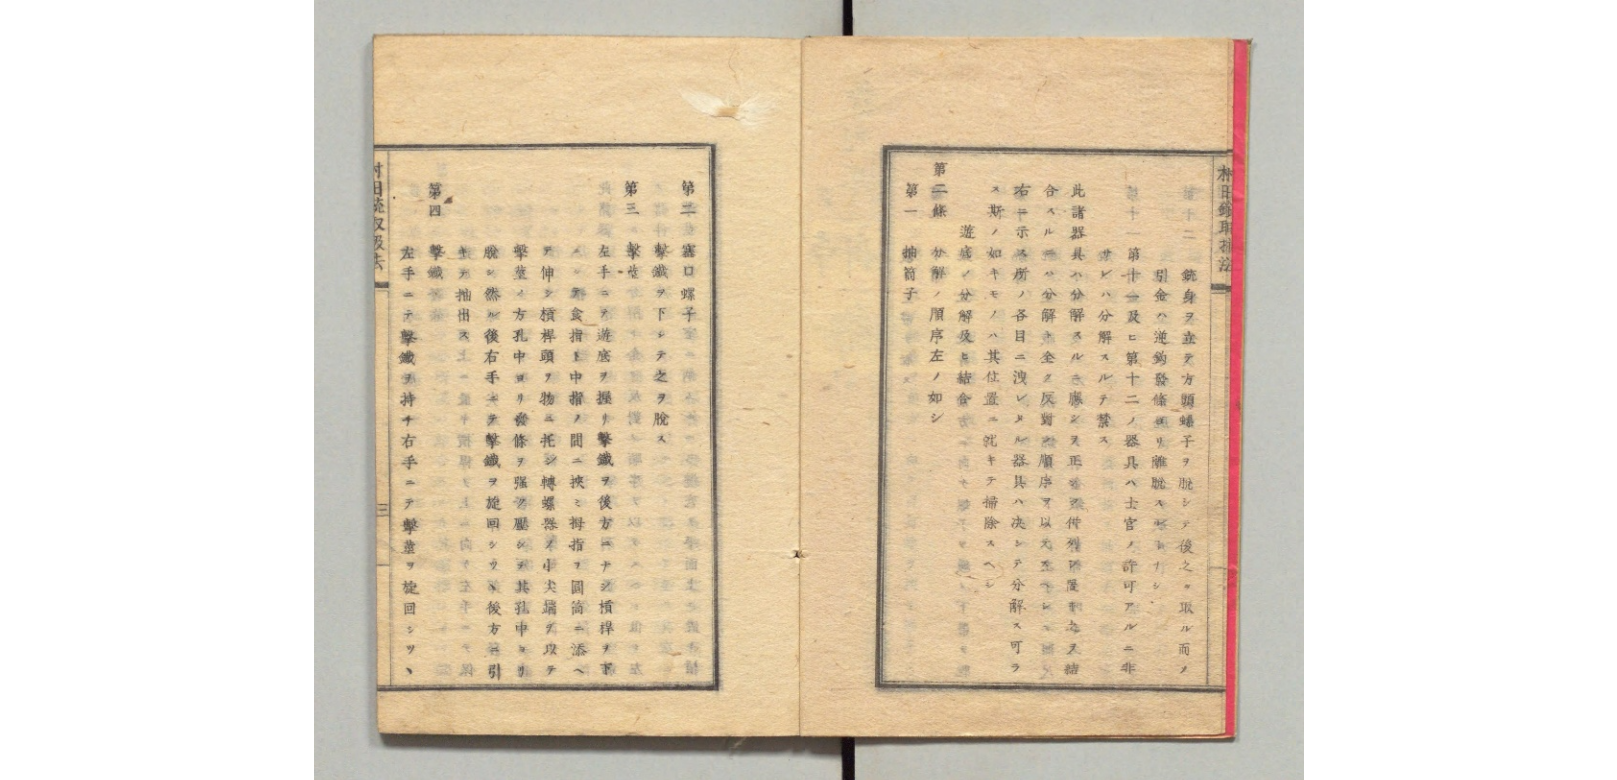 村田銃取扱法
銃身ヲ立テ方頭螺子ヲ脱シテ後之ヲ取ル而ノ
引金ハ逆鈎發條ヨリ離脱スヘカラス
第十一及ヒ第十二ノ器具ハ士官ノ許可アルニ非
サレハ分解スルヲ禁ス
此諸器具ハ分解スルニ從シヲ正
合スル ハ分解ト全ク反對ノ順序ヲ以テス
右ニ示ス所ノ各目ニ洩レタル器具ハ决シテ分解ス可ラ
ス斯ノ如キモノハ其位置ニ就キテ掃除スヘシ
遊底ノ分解及ヒ結合
第二條 分解ノ順序左ノ如シ
第一 抽筒子
第二 塞口螺子
擊鐵ヲ下シテ之ヲ脫ス
第三 擊莖
左手ニテ遊底ヲ握リ擊鐵ヲ後方ニナシ槓桿ヲ下
ニシ食指ト中指ノ間ニ挾ミ拇指ヲ圓筒ニ添ヘ
ヲ伸シ槓桿頭ヲ物ニ托シ轉螺器ノ小尖端ヲ以テ
擊莖ノ方孔中ヨリ發條ヲ强ク壓シテ其孔中ヨリ
脫シ然ル後右手ニテ擊鐵ヲ旋回シツヽ後方ニ引
テ抽出ス
第四 擊鐵
左手ニテ擊鐵ヲ持チ右手ニテ擊莖ヲ旋回シツヽ
村田銃取扱法
三